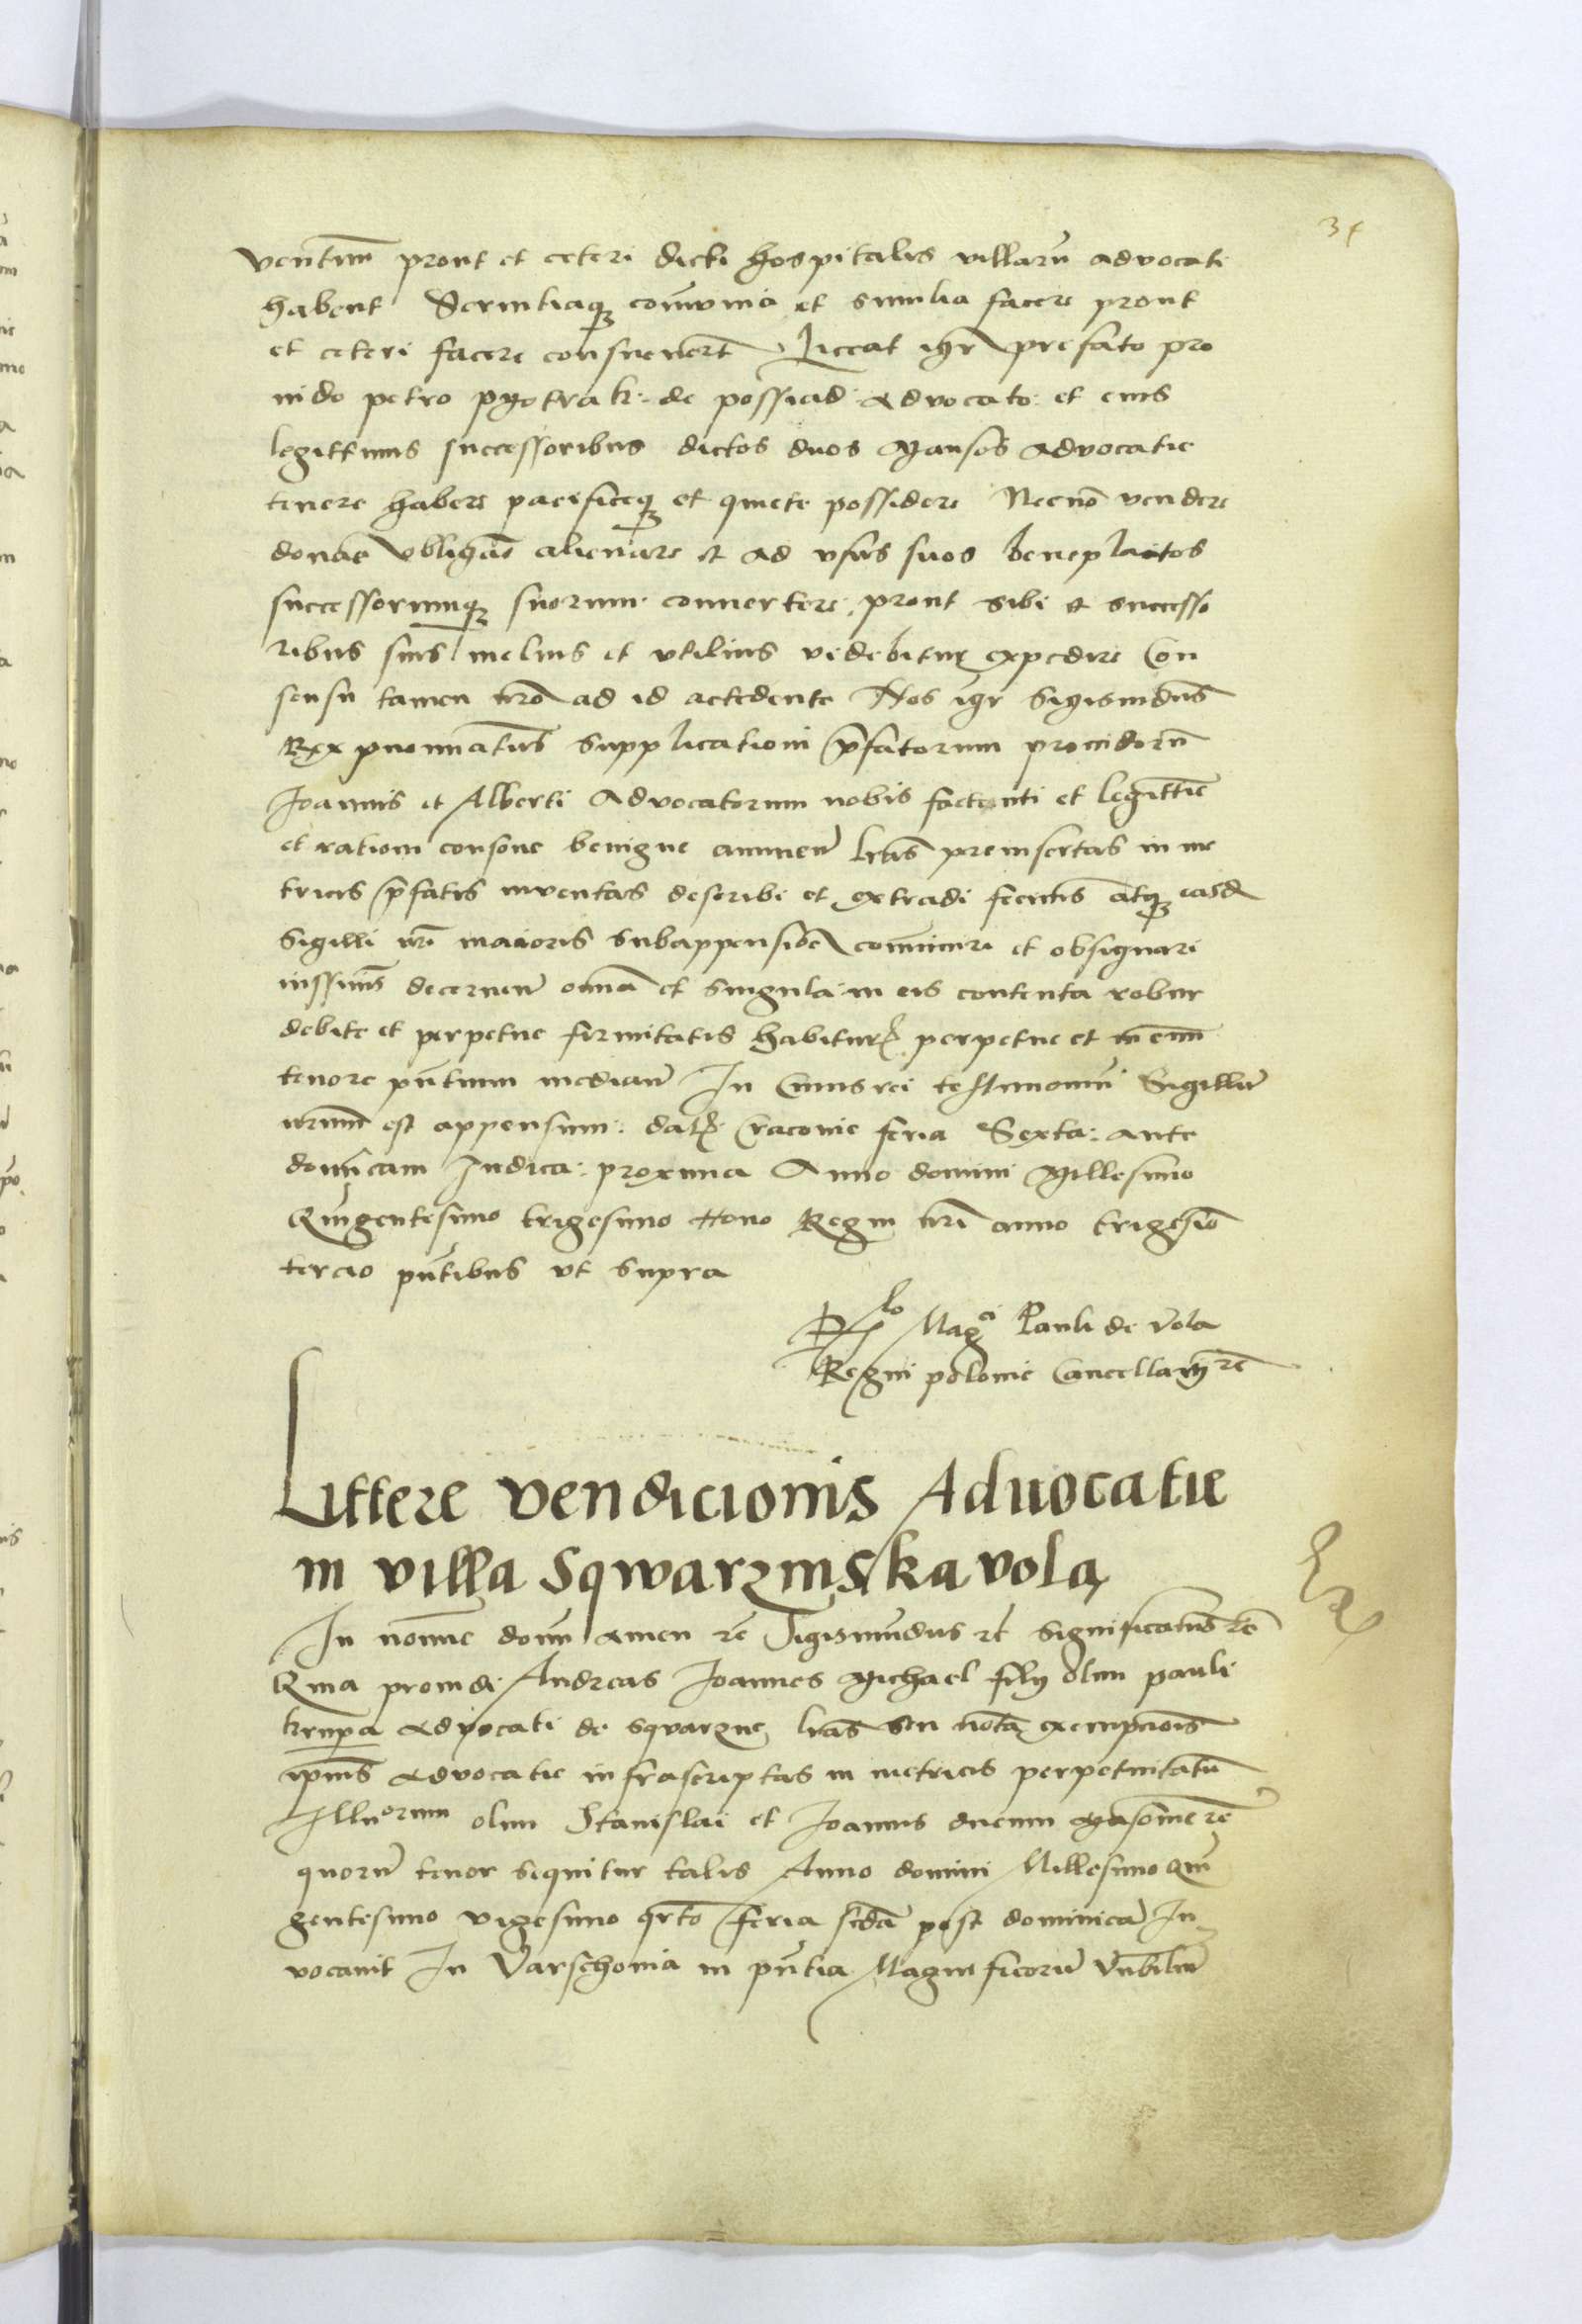 34
ventum prout et ceteri dicti hospitalis villarū advocati
habent Servitiaqꝫ com̄unia et similia facere prout
et ceteri facere consuever̄t Liceat igr̄ prefato pro
vido petro pyotrak de possiad advocato et eius
legittimis successoribus dictos duos Mansos advocatie
tenere habere pacificeqꝫ et quiete possidere Necnō vendere
donar̄e obligar̄e alienare et ad usus suos beneplacitos
successorumqꝫ suorum convertere prout sibi et successo
ribus suis melius et utilius videbitur expedire Con
sensu tamen nr̄o ad id accedente Nos igr̄ Sigismūdus
Rex prenominatus supplicationi p̄fatorum providorū
Joannis et Alberti Advocatorum nobis facte uti et legittīe
et rationi consone benigne annuen̄ lr̄as preinsertas in me
tricis p̄fatis inventas describi et extradi fecim̄s atqꝫ easd
Sigilli nr̄i maioris subappensiōe com̄uniri et obsignari
iussim̄s decernen̄ om̄ia et singula in eis contenta robur
debite et perpetue firmitatis habitur perpetue et in evum
tenore pn̄tium median̄ In Cuius rei testimoniū Sigillū
nr̄um est appensum dat Cracovie feria Sexta ante
domīcam Judica proxima Anno domini Millesimo
Quingentesimo trigesimo Nono Regni nr̄i anno trigesiō
tercio pn̄tibus ut supra
Rlo Magci Pauli de Vola
Regni polonie Cancellarij rē
Littere vendicionis Aduocatie
in villa Sqwarzinska vola
In nomīe domī amen rē Sigismūdus rē significam̄s rē
Quia providi Andreas Joannes Michael filij olim pauli
krupa advocati de sqvarzne lr̄as seu notā exempcionis
ipius advocatie infrascriptas in metricis perpetuitatū
Illuorum olim Stanislai et Joannis ducum Masovie rē
quorū tenor sequitur talis Anno domini Millesimo Quī
gentesimo vigesimo qrto feria scdā post dominicā In
vocavit In Varschovia in pn̄tia Magnificorū Vn̄bilium